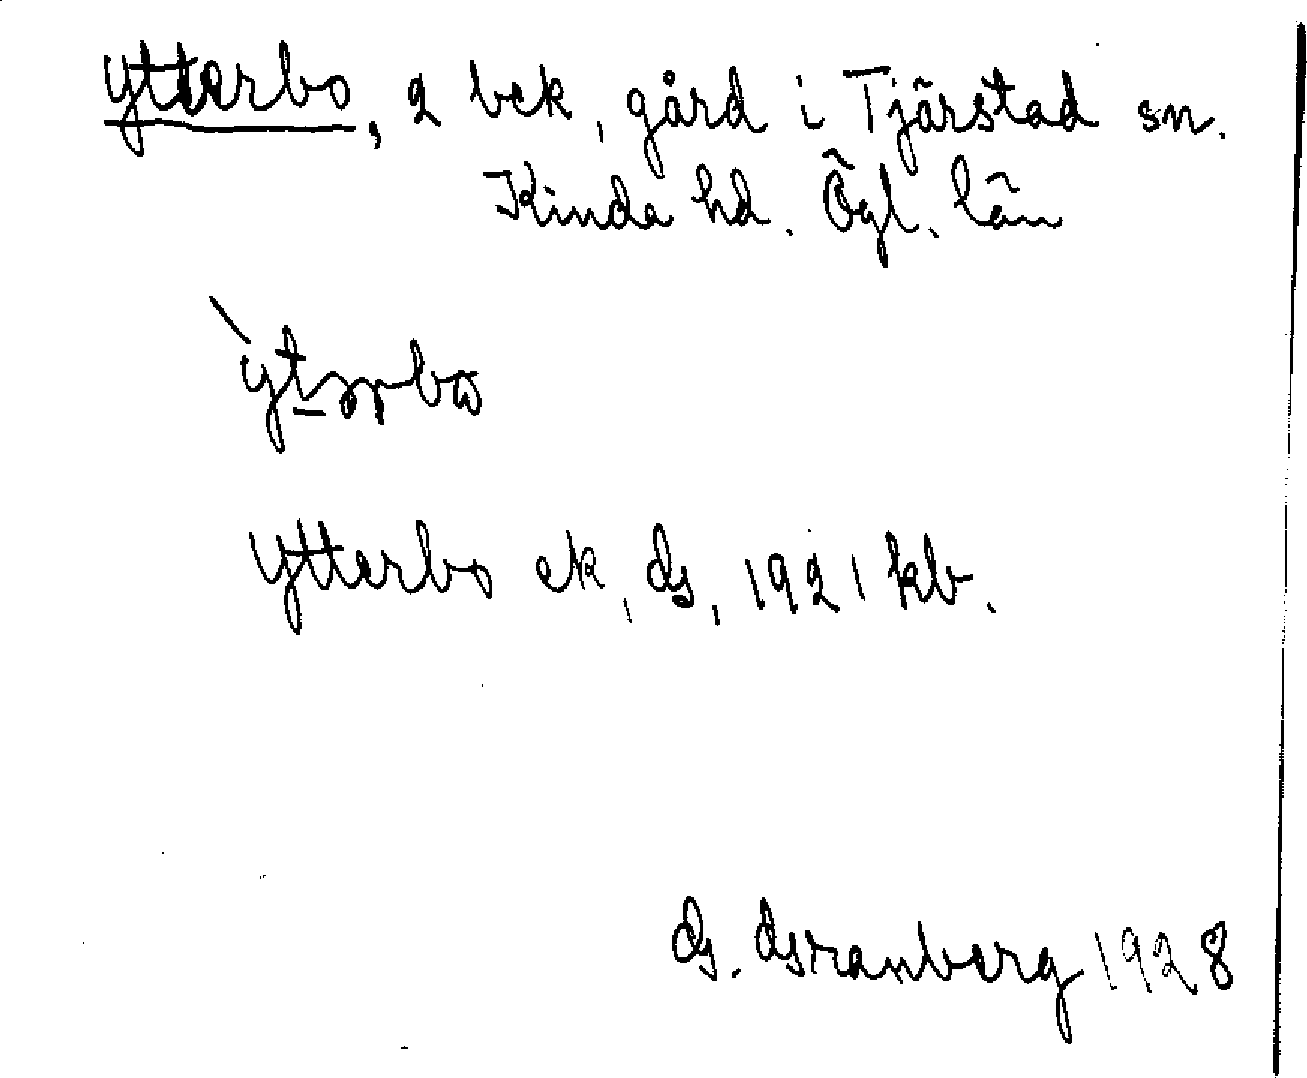 Ytterbo, 2 bek, gård i Tjärstad sn.
Kinda hd. Ögl. län
Ytterbo ek, G, 1921 kb.
G. Granberg 1928